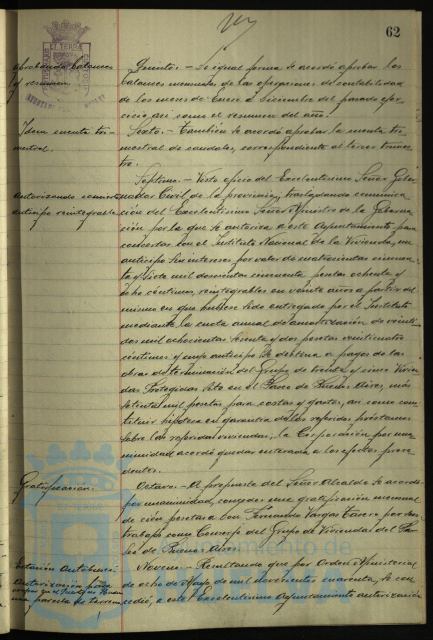 62
Aprobando balances y resumen
Quinto.- De igual forma se acordó aprobar los
balances mensuales de las operaciones de contabilidad
de los meses de Enero a Diciembre del pasado ejer-
cicio así como el resumen del año.
Idem cuenta trimestral.
Sexto.- También se acordó aprobar la cuenta tri-
mestral de caudales, correspondiente al tercer trimes-
tre.
Autorizando concertar anticipo reintegrable
Séptimo.- Visto oficio del Excelentísimo Señor Gober-
nador Civil de la provincia, trasladando comunica-
ción del Excelentísimo Señor Ministro de la Goberna-
ción por la que se autoriza a este Ayuntamiento para
concertar con el Instituto Nacional de la Vivienda, un
anticipo sin interés por valor de cuatrocientas cincuen-
ta y siete mil doscientas cincuenta pesetas ochenta y
ocho céntimos, reintegrables en veinte años a partir del
mismo en que hubiere sido entregado por el Instituto
mediante la cuota anual de amortización de veinti-
dos mil ochocientas sesenta y dos pesetas veinticuatro
céntimos y cuyo anticipo se destina a pagos de las
obras de terminación del Grupo de treinta y cinco Vivien-
das Protegidas sito en el Paseo de Buenos Aires, más
setenta mil pesetas para costas y gastos, así como cons-
tituir hipoteca en garantía de los referidos préstamos
sobre las referidas viviendas, la Corporación por una-
nimidad acordó quedar enterada a los efectos proce-
dentes.
Gratificación.
Octavo.- A propuesta del Señor Alcalde se acordó
por unanimidad, conceder una gratificación mensual
de cien pesetas a Don Fernando Vargas por su
trabajo como Conserje del Grupo de Viviendas del Pa-
seo de Buenos Aires.
Estación Autobuses
Autorización para
una parcela de terreno
Noveno.- Resultando que por Orden Ministerial
de ocho de Mayo de mil novecientos cuarenta, se con-
cedió, a este Excelentísimo Ayuntamiento autorización